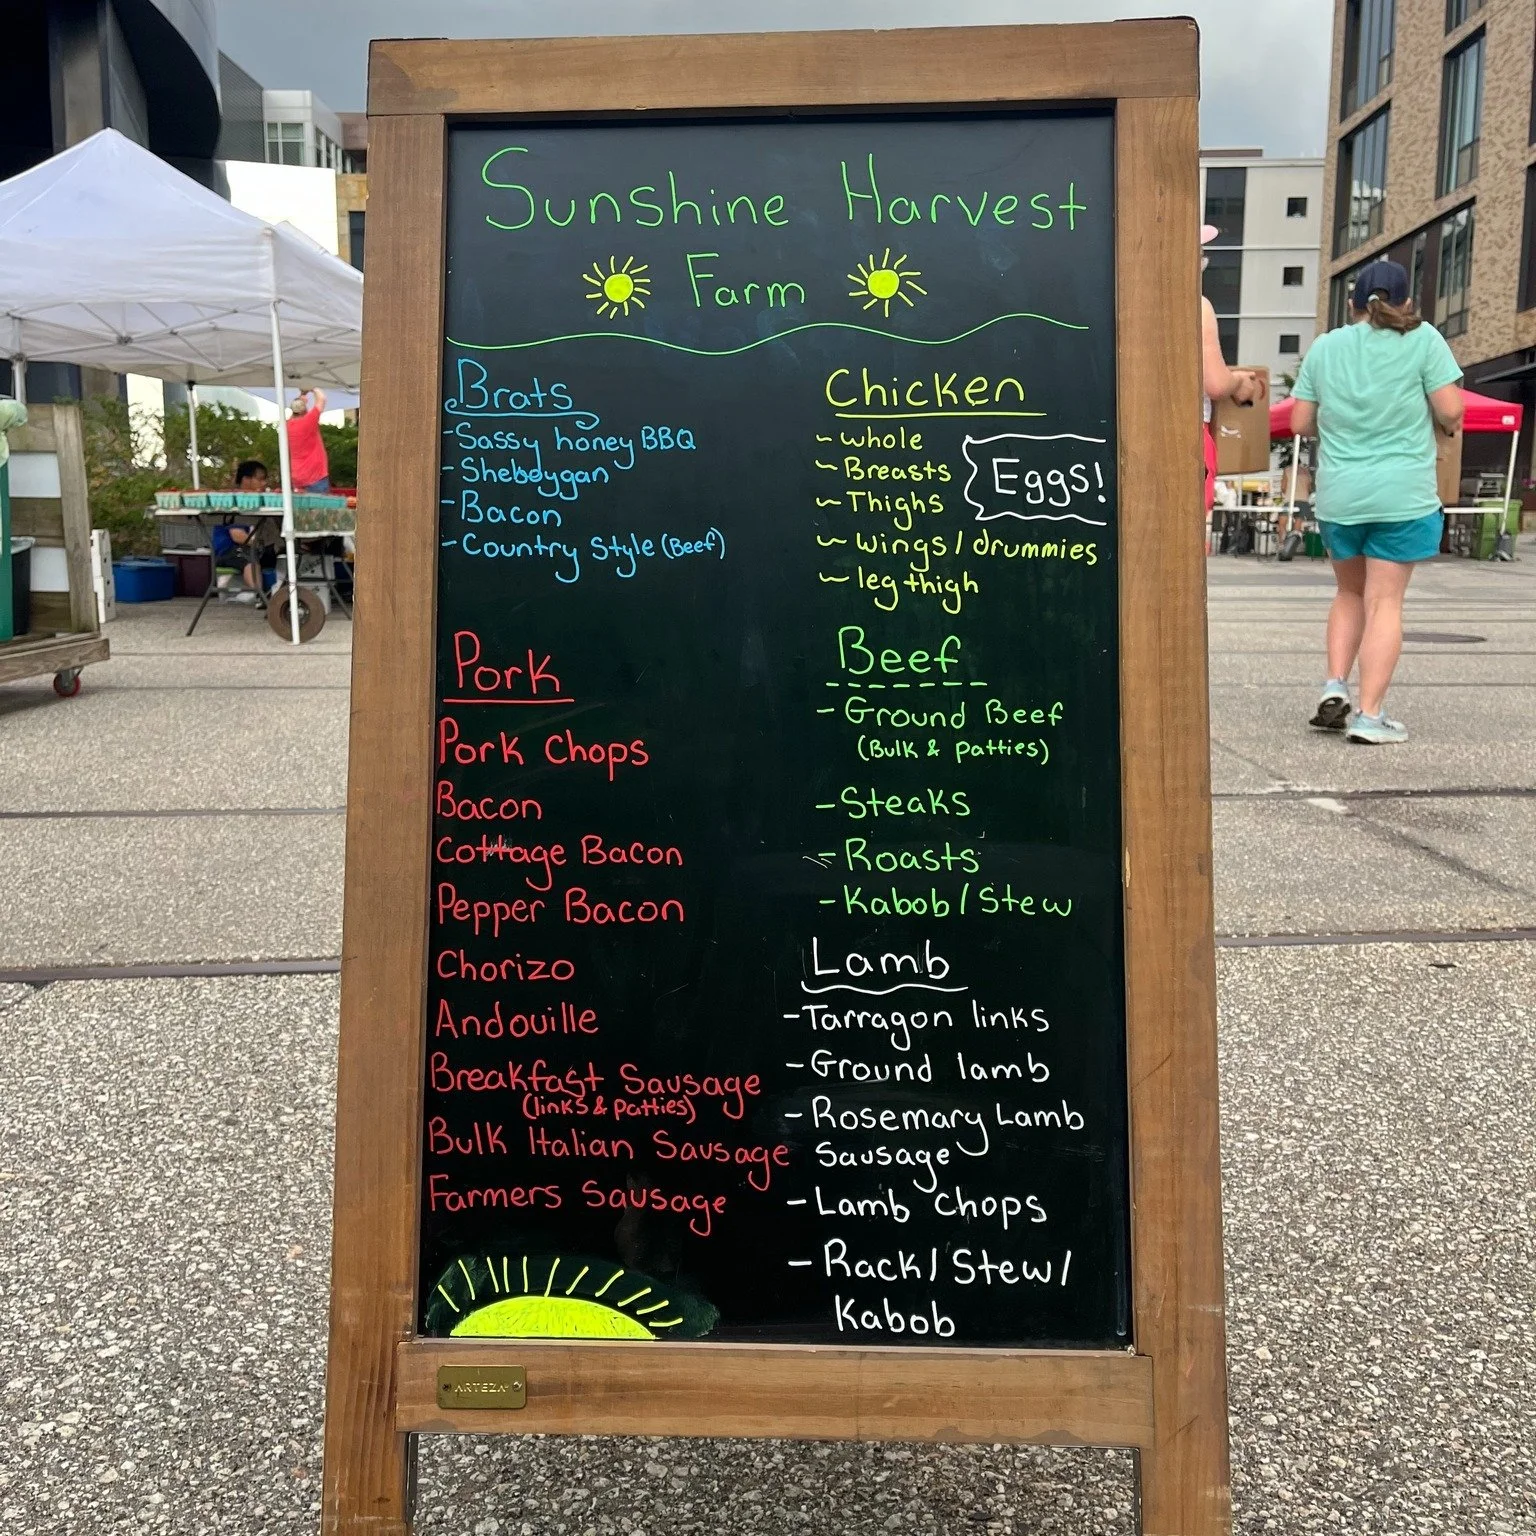 Sunshine Harvest
Farm
Brats
-Sassy honey BBQ
-Sheboygan
-Bacon
-Country Style (Beef)
Pork
Pork Chops
Bacon
Cottage Bacon
Pepper Bacon
Chorizo
Andouille
Breakfast Sausage
(links & patties)
Bulk Italian Sausage
Farmers Sausage
Chicken
~ whole
~ Breasts
~ Thighs
~ wings / drummies
~ leg thigh
Eggs!
Beef
- Ground Beef
(Bulk & patties)
- Steaks
- Roasts
- Kabob / Stew
Lamb
- Tarragon links
- Ground lamb
- Rosemary Lamb
Sausage
- Lamb Chops
- Rack / Stew /
Kabob
ARTEZA